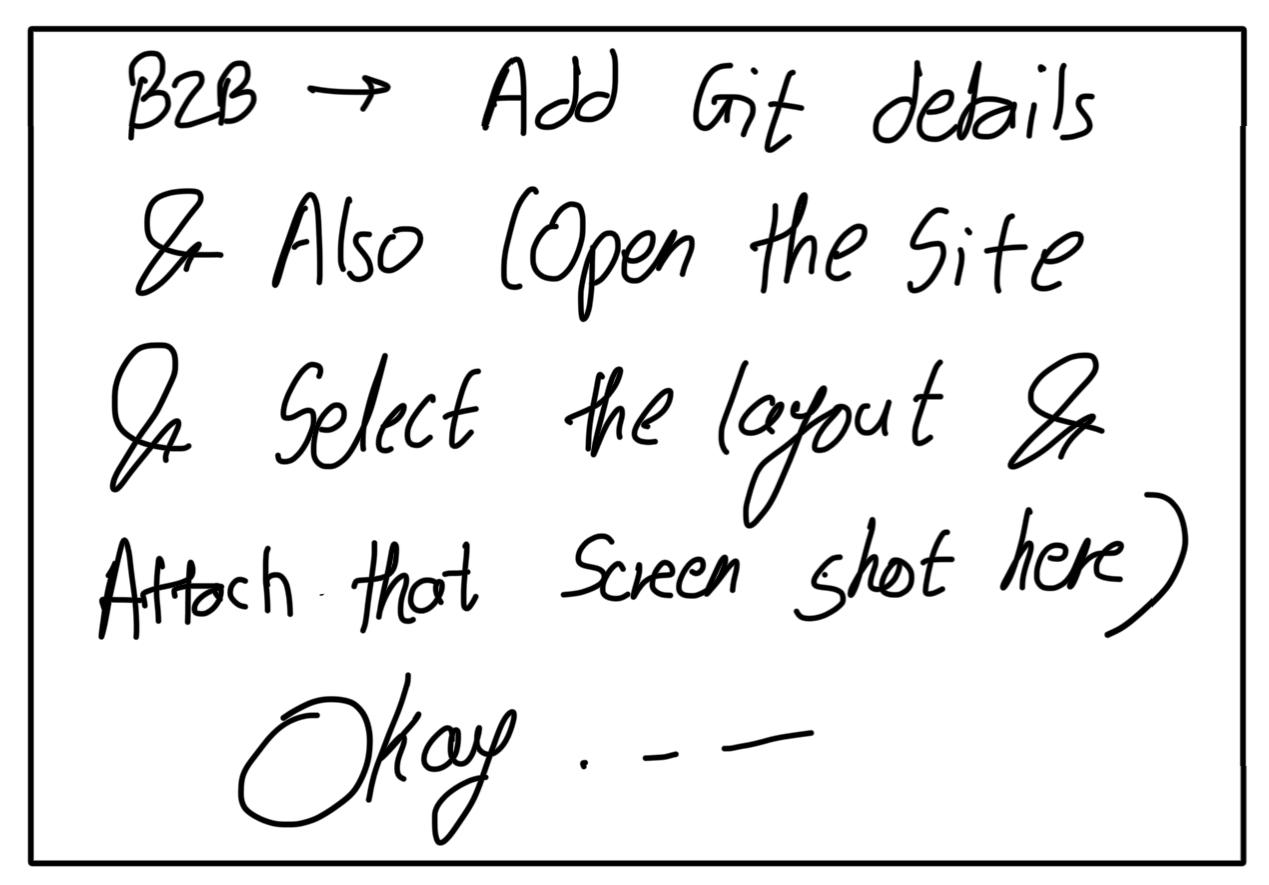 B2B → Add Git details
& Also (Open the Site
& Select the layout &
Attach that Screen shot here)
Okay . - —